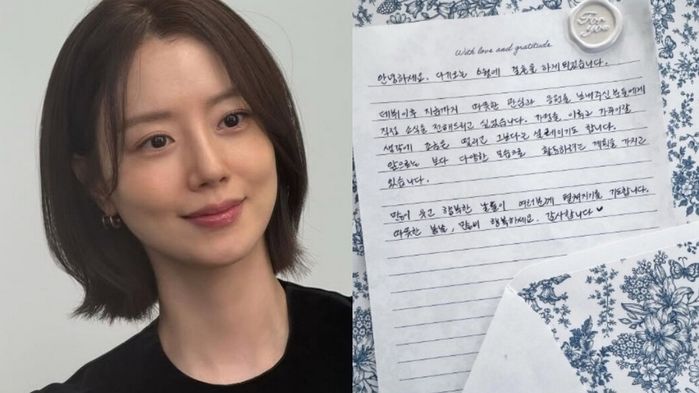 For you
With love and gratitude
안녕하세요. 다가오는 6월에 결혼을 하게 되었습니다.
데뷔이후 지금까지 따뜻한 관심과 응원을 보내주신 분들에게
직접 소식을 전해드리고 싶었습니다. 가정을 이루고 가꾸어갈
생각에 조금은 떨리고 그보다 더 설레이기도 합니다.
앞으로는 보다 다양한 모습으로 활동하려는 계획을 가지고
있습니다.
많이 웃고 행복한 날들이 여러분께 펼쳐지기를 기도합니다.
따뜻한 봄날, 많이 행복하세요. 감사합니다